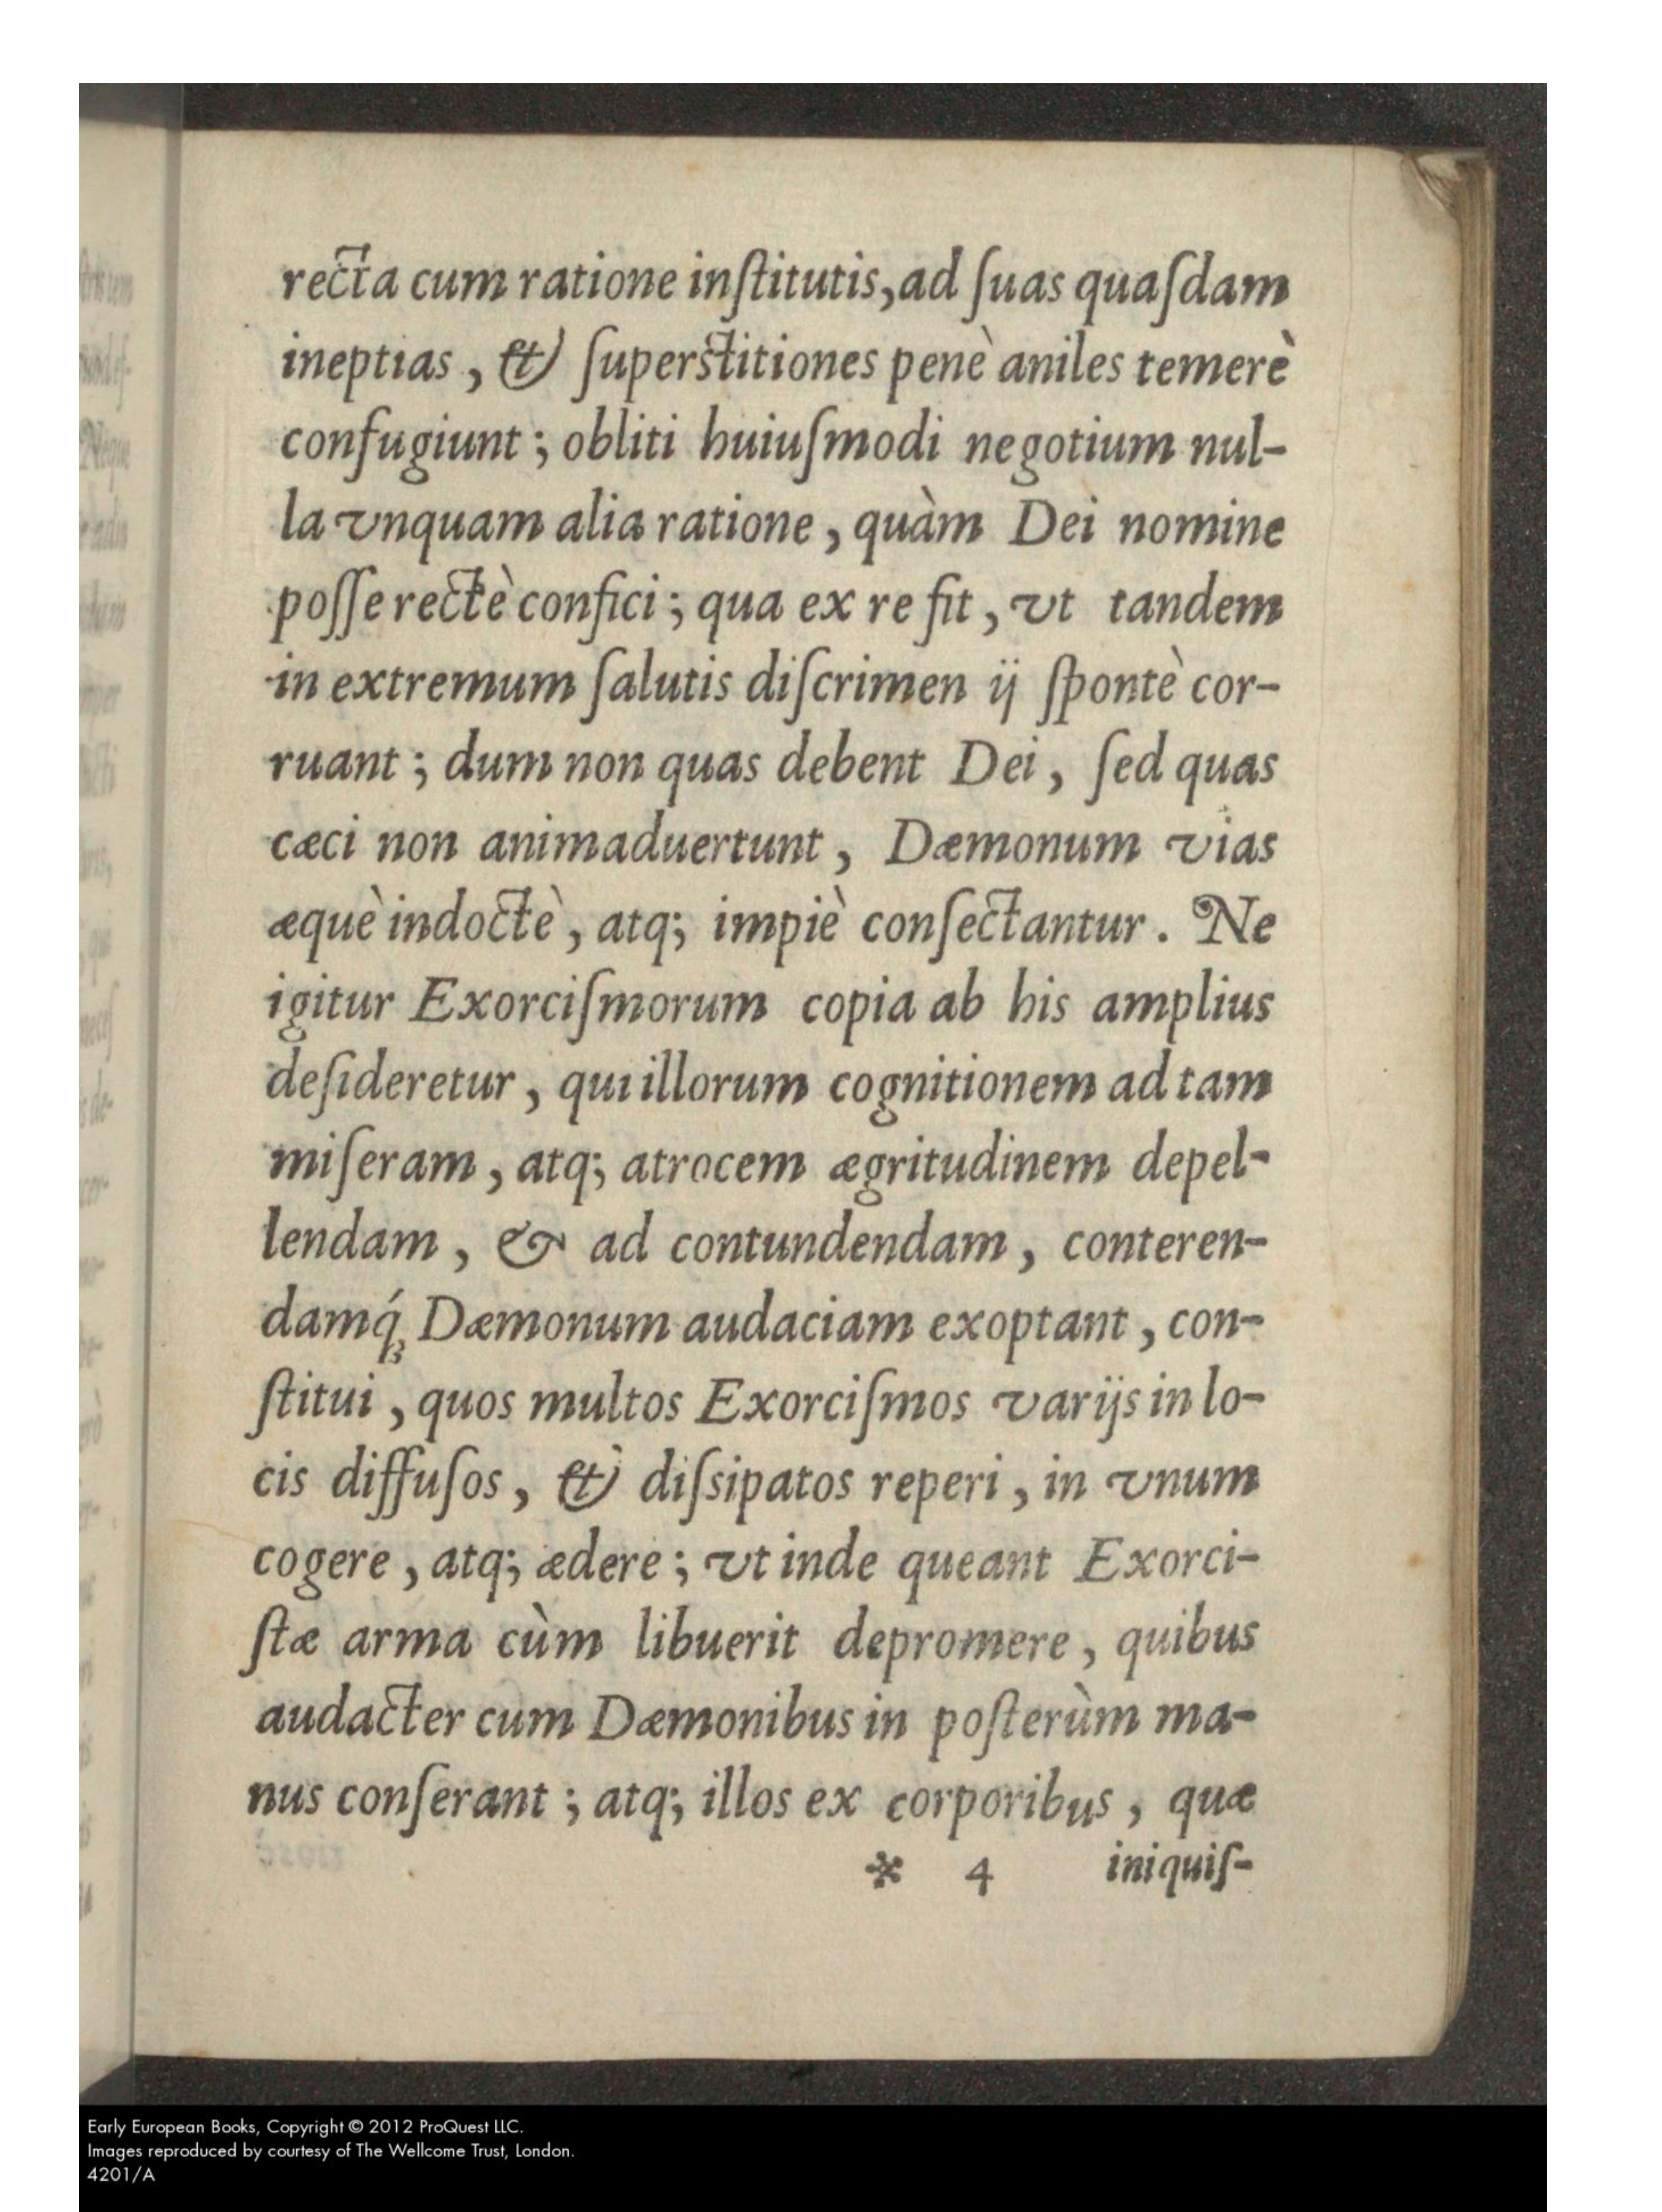 recta cum ratione inſtitutis, ad ſuas quaſdam
ineptias, & ſuperſtitiones penè aniles temerè
confugiunt; obliti huiuſmodi negotium nul-
la vnquam alia ratione, quàm Dei nomine
poſſe rectè confici; qua ex re fit, vt tandem
in extremum ſalutis diſcrimen ij ſpontè cor-
ruant; dum non quas debent Dei, ſed quas
cæci non animaduertunt, Dæmonum vias
æquè indoctè, atq; impiè conſectantur. Ne
igitur Exorciſmorum copia ab his amplius
deſideretur, qui illorum cognitionem ad tam
miſeram, atq; atrocem ægritudinem depel-
lendam, & ad contundendam, conteren-
damq́ꝫ Dæmonum audaciam exoptant, con-
ſtitui, quos multos Exorciſmos varijs in lo-
cis diffuſos, & diſsipatos reperi, in vnum
cogere, atq; ædere; vt inde queant Exorci-
ſtæ arma cùm libuerit depromere, quibus
audacter cum Dæmonibus in poſterùm ma-
nus conſerant; atq; illos ex corporibus, quæ
* 4 iniquiſ-
Early European Books, Copyright © 2012 ProQuest LLC.
Images reproduced by courtesy of The Wellcome Trust, London.
4201/A